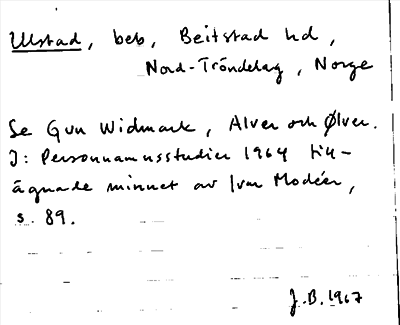 Ulstad, beb, Beitstad hd,
Nord-Tröndelag, Norge
Se Gun Widmark, Alver och Ølver.
I: Personnamnsstudier 1964 till-
ägnade minnet av Ivar Modéer,
s. 89.
J.B. 1967